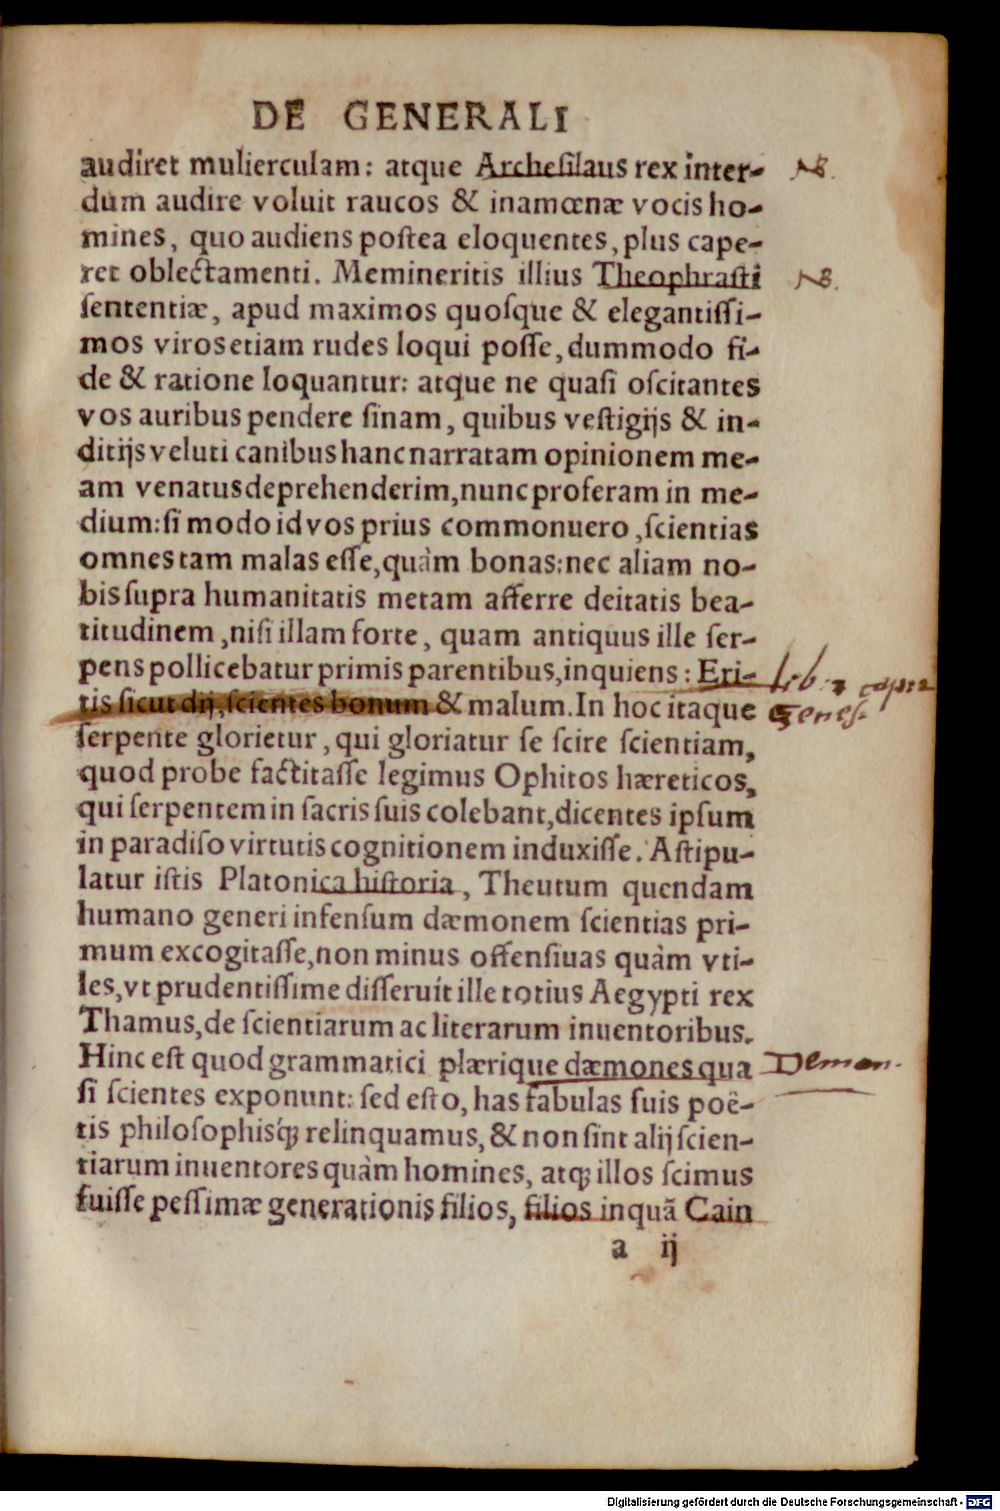 DE GENERALI
audiret mulierculam: atque Archesilaus rex inter-
NB.
dum audire voluit raucos & inamœnæ vocis ho-
mines, quo audiens postea eloquentes, plus cape-
ret oblectamenti. Memineritis illius Theophrasti
NB.
sententiæ, apud maximos quosque & elegantissi-
mos viros etiam rudes loqui posse, dummodo fi-
de & ratione loquantur: atque ne quasi oscitantes
vos auribus pendere sinam, quibus vestigijs & in-
ditijs veluti canibus hanc narratam opinionem me-
am venatus deprehenderim, nunc proferam in me-
dium: si modo id vos prius commonuero, scientias
omnes tam malas esse, quàm bonas: nec aliam no-
bis supra humanitatis metam afferre deitatis bea-
titudinem, nisi illam forte, quam antiquus ille ser-
pens pollicebatur primis parentibus, inquiens: Eri-
tis sicut dij, scientes bonum & malum. In hoc itaque
Genes.
serpente glorietur, qui gloriatur se scire scientiam,
quod probe factitasse legimus Ophitos hæreticos,
qui serpentem in sacris suis colebant, dicentes ipsum
in paradiso virtutis cognitionem induxisse. Astipu-
latur istis Platonica historia, Theutum quendam
humano generi infensum dæmonem scientias pri-
mum excogitasse, non minus offensiuas quàm vti-
les, vt prudentissime disseruit ille totius Aegypti rex
Thamus, de scientiarum ac literarum inuentoribus.
Hinc est quod grammatici plærique dæmones qua
Demon.
si scientes exponunt: sed esto, has fabulas suis poë-
tis philosophisq́; relinquamus, & non sint alij scien-
tiarum inuentores quàm homines, atq; illos scimus
fuisse pessimæ generationis filios, filios inquā Cain
a ij
Digitalisierung gefördert durch die Deutsche Forschungsgemeinschaft - DFG